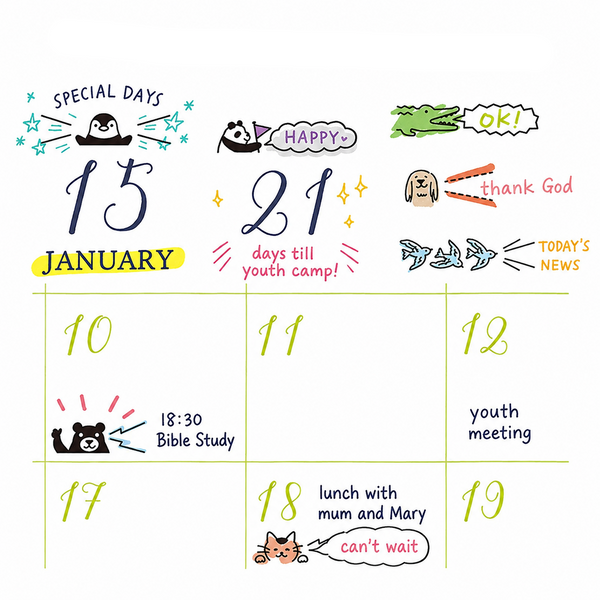 SPECIAL DAYS
15
JANUARY
HAPPY
21
days till
youth camp!
OK!
thank God
TODAY'S
NEWS
10
18:30
Bible Study
11
12
youth
meeting
17
18
lunch with
mum and Mary
can't wait
19